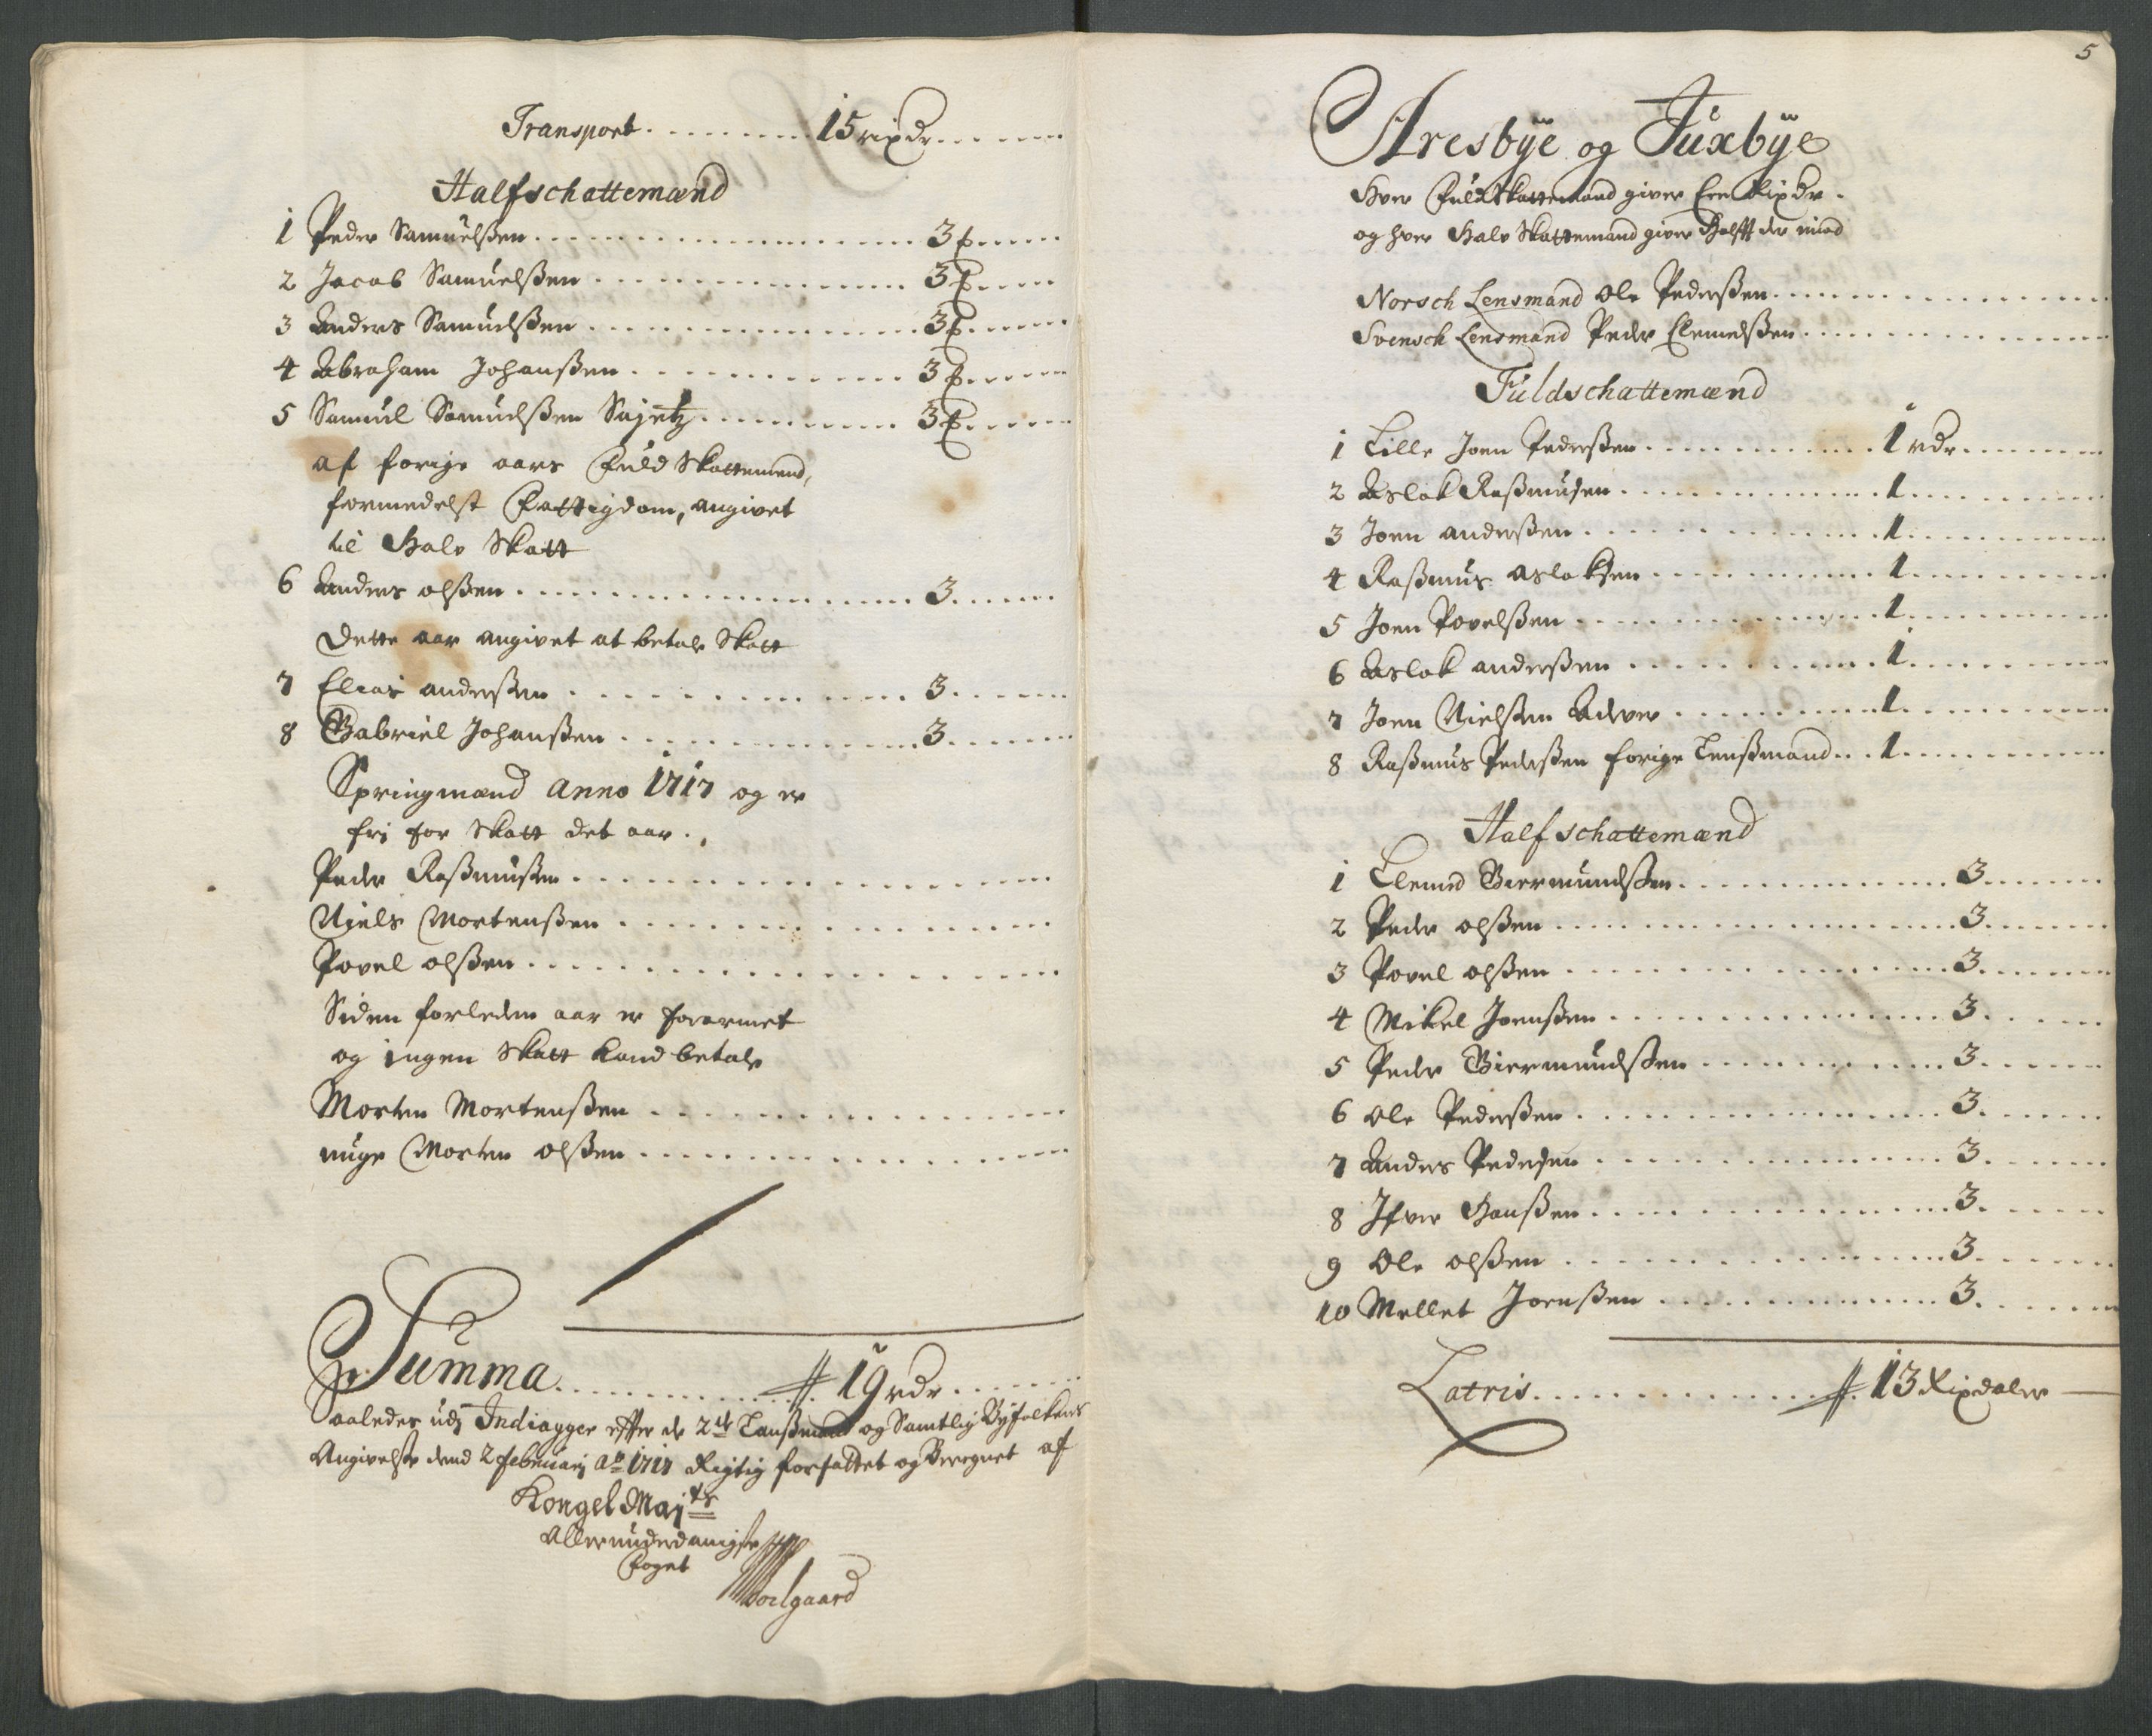 Transport . . . . . . . . . 15 rixdr . . . . . .
Halfschattemænd
1 Peder Samuelßen . . . . . . . . 3 ₰ . . . .
2 Jacob Samuelßen . . . . . . . . 3 ₰ . . . .
3 Anders Samuelßen . . . . . . . . 3 ₰ . . . .
4 Abraham Johanßen . . . . . . . . 3 ₰ . . . .
5 Samuel Samuelßen . . . . . . . . 3 ₰ . . . .
af forige aars Fuld Skattemend,
formedelst Fattigdom, angivet
til Halv Skatt
6 Anders olßen . . . . . . . . 3 . . . .
Dette aar angivet at betale Skatt
7 Elias anderßen . . . . . . . . 3 . . . .
8 Gabriel Johanßen . . . . . . . . 3 . . . .
Springmænd Anno 1717 og er
fri for Skatt det aar.
Peder Raßmußen . . . . . . . .
Niels Mortenßen . . . . . . . .
Povel olßen . . . . . . . .
Siden forleden aar er forarmet
og ingen Skatt kand betale
Morten Mortenßen . . . . . . . .
unge Morten olßen . . . . . . . .
Summa . . . . . . . . 19 rdr . . . .
Saaledes udj Indiagger efter de 2de Lanßmænd og Samtlig Byfolkens
Angivelse dend 2 februarij Ao 1717 Rigtig forfattet og Beregnet af
Kongel May ts
Allerunderdanigste
Foget
Soelgaard
5
Aresbÿe og Juxbÿe
Hver Fuld Skattemand giver Een Rixdr.
og hver Halv Skattemand giver Helfft der imod
Norsch Lensmand Ole Pederßen . . . . . . . .
Svensch Lensmand Peder Clemedßen . . . . . . . .
Fuldschattemænd
1 Lille Joen Pederßen . . . . . . . . 1 rdr . . . .
2 Aslak Raßmusen . . . . . . . . 1 . . . .
3 Joen anderßen . . . . . . . . 1 . . . .
4 Raßmus Aslaksen . . . . . . . . 1 . . . .
5 Joen Povelßen . . . . . . . . 1 . . . .
6 Aslak anderßen . . . . . . . . 1 . . . .
7 Joen Nielßen . . . . . . . . 1 . . . .
8 Raßmus Pederßen forige Lenßmand . . 1 . . . .
Halfschattemænd
1 Clemed Biermundßen . . . . . . . . 3 . . . .
2 Peder olßen . . . . . . . . 3 . . . .
3 Povel olßen . . . . . . . . 3 . . . .
4 Mikel Joenßen . . . . . . . . 3 . . . .
5 Peder Biermundßen . . . . . . . . 3 . . . .
6 Ole Pederßen . . . . . . . . 3 . . . .
7 Anders Pedersen . . . . . . . . 3 . . . .
8 Ifver Hanßen . . . . . . . . 3 . . . .
9 Ole olßen . . . . . . . . 3 . . . .
10 Mellet Joenßen . . . . . . . . 3 . . . .
Latris . . . . . . . . 13 Rixdaler